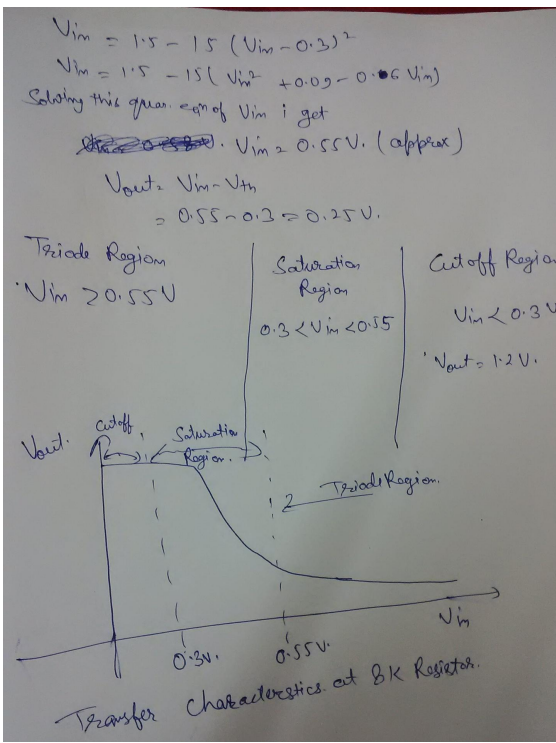 Vin = 1.5 - 15 (Vin - 0.3)²
Vin = 1.5 - 15( Vin² + 0.09 - 0.06 Vin)
Solving this quar. eqn of Vin i get
Vin = 0.55V. (approx)
Vout = Vin - Vth
= 0.55 - 0.3 = 0.25V.
Triode Region
Vin ≥ 0.55V
Saturation
Region
0.3 < Vin < 0.55
Cutoff Region
Vin < 0.3V
Vout = 1.2V.
Vout.
Cutoff
Saturation
Region.
Triode Region.
Vin
0.3V.
0.55V.
Transfer Characterstics at 8K Resistor.